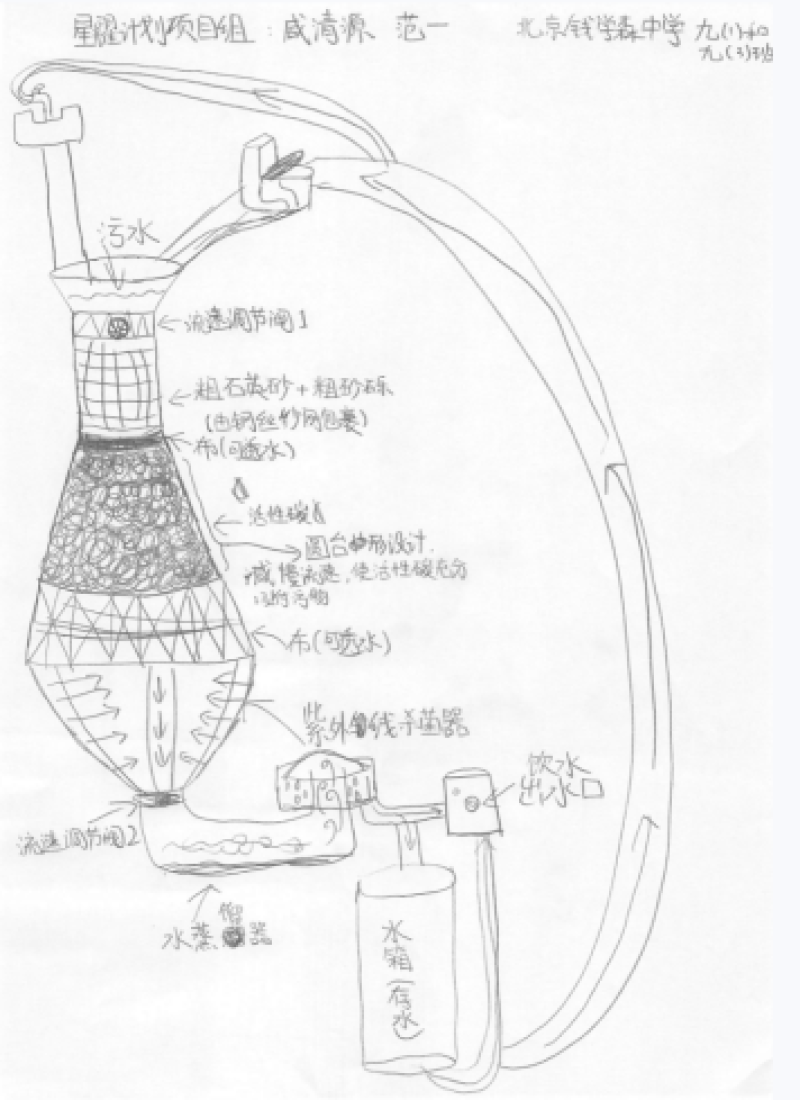 星耀计划项目组：咸清源 范一
北京钱学森中学 九(1)和
九(3)班
污水
流速调节阀1
粗石英砂+粗砂砾
(由钢丝纱网包裹)
布(可透水)
活性碳
圆台形设计.
减慢流速，使活性碳充分
污物
布(可透水)
紫外线杀菌器
饮水
出水口
流速调节阀2
水蒸馏器
水箱(存水)